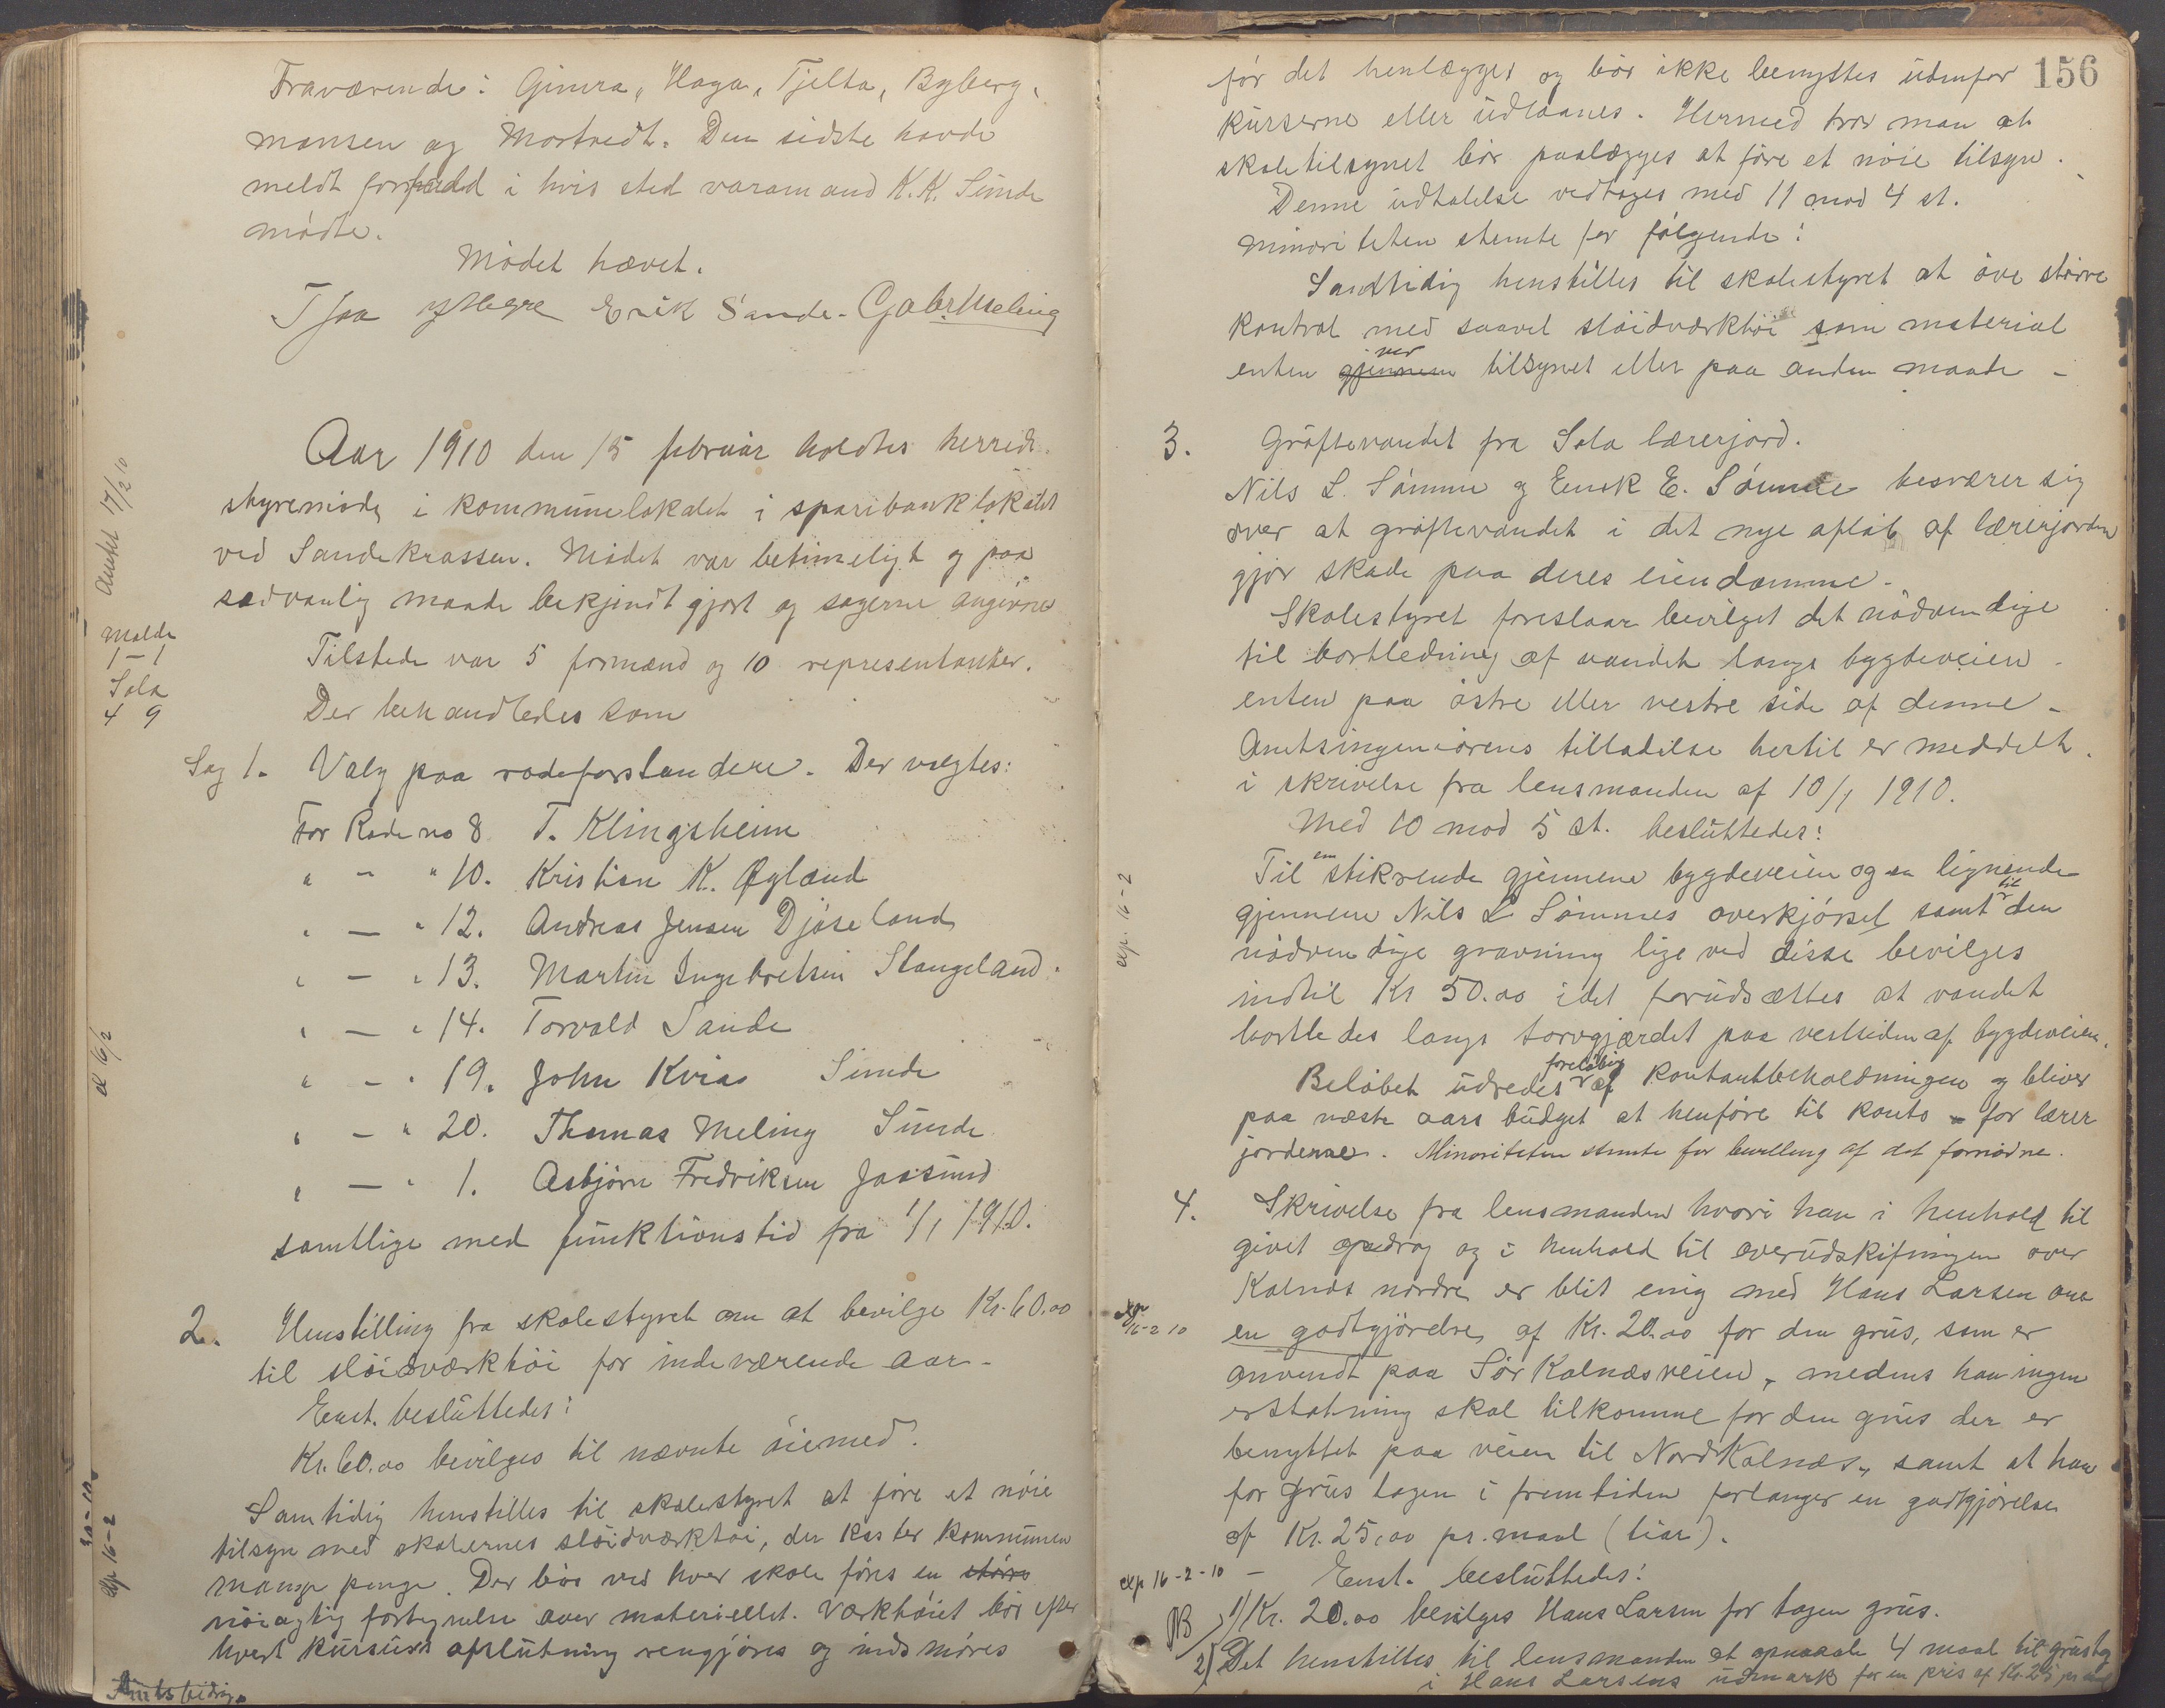 Fraværende: Gimra, Haga, Tjelta, Byberg,
monsen og Mortvedt. Den sidste havde
meldt forfald i hvis sted varamand K. K. Sunde
mødte.
Mødet hævet.
Erik Sande. Gabr Meling
Aar 1910 den 15 februar holdtes herreds
styremøde i kommunelokalet i sparebanklokalet
ved Sandekrossen. Mødet var betimeligt og paa
sædvanlig maade bekjendtgjort og sagerne angivne
Tilstede var 5 formænd og 10 representanter.
Molde
1-1
Sola
4 9
Der behandledes som
Sag 1. Valg paa rodeforstandere. Der valgtes:
For Rode no 8 T. Klingsheim
" - " 10. Kristian K. Øgland
" - " 12. Andreas Jensen Djøseland
" - " 13. Martin Ingebretsen Stangeland.
" - " 14. Torvald Sande
" - " 19. John Kvias Sunde
" - " 20. Thomas Meling Sunde
" - " 1. Asbjørn Fredriksen Jaasund
samtlige med funktionstid fra 1/1 1910.
2. Henstilling fra skolestyret om at bevilge Kr. 60.00
til sløidværktøi for indeværende aar.
Enst. besluttedes:
Kr. 60.00 bevilges til nævnte øiemed.
Samtidig henstilles til skolestyret at føre et nøie
tilsyn med skolernes sløidværktøi, der koster kommunen
mange penge. Der bør ved hver skole føres en større
nøiagtig fortegnelse over materiellet. Værktøiet bør efter
hvert kursus's afslutning rengjøres og indsmøres
Amtet 17/2 10
ex 16/2
exp 16-2
156
før det henlægges og bør ikke benyttes udenfor
kurserne eller udlaanes. Hermed tror man at
skoletilsynet bør paalægges at føre et nøie tilsyn.
Denne udtalelse vedtages med 11 mod 4 st.
minoriteten stemte for følgende:
Samtidig henstilles til skolestyret at øve større
kontrol med saavel sløidværktøi som material
enten gjennem ved tilsynet eller paa anden maade -
3. Grøftevandet fra Sola lærerjord.
Nils L. Sømme og Enok E. Sømme besværer sig
over at grøftevandet i det nye afløb af lærerjorden
gjør skade paa deres eiendomme.
Skolestyret foreslaar bevilget det nødvendige
til bortledning af vandet langs bygdeveien
enten paa østre eller vestre side af denne -
Amtsingeniørens tilladelse hertil er meddelt
i skrivelse fra lensmanden af 10/1 1910.
Med 10 mod 5 st. besluttedes:
Til en stikrende gjennem bygdeveien og en lignende
gjennem Nils L Sømmes overkjørsel samt til den
nødvendige gravning lige ved disse bevilges
indtil Kr 50.00 idet forudsættes at vandet
bortledes langs torvgjærdet paa vestsiden af bygdeveien.
Beløbet udredes foreløbig af kontantbeholdningen og bliver
paa næste aars budget at henføre til konto for lærer
jorderne. Minoriteten stemte for bevilling af det fornødne.
exp. 16-2
4. Skrivelse fra lensmanden hvori han i henhold til
givet opdrag og i henhold til overudskiftningen over
Kolnes nordre er blit enig med Hans Larsen om
en godtgjørelse af Kr. 20.00 for den grus, som er
anvendt paa Sør Kolnæsveien, medens han ingen
erstatning skal tilkomme for den grus der er
benyttet paa veien til Nord Kolnæs, samt at han
for grus tagen i fremtiden forlanger en godtgjørelse
af Kr. 25.00 pr. maal (tiar).
exp 16-2 10
exp 16-2-10 - Enst. besluttedes:
NB 1) Kr. 20.00 bevilges Hans Larsen for tagen grus.
2) Det henstilles til lensmanden at opmaale 4 maal til grustag
i Hans Larsens udmark for en pris af Kr. 25 pr maal